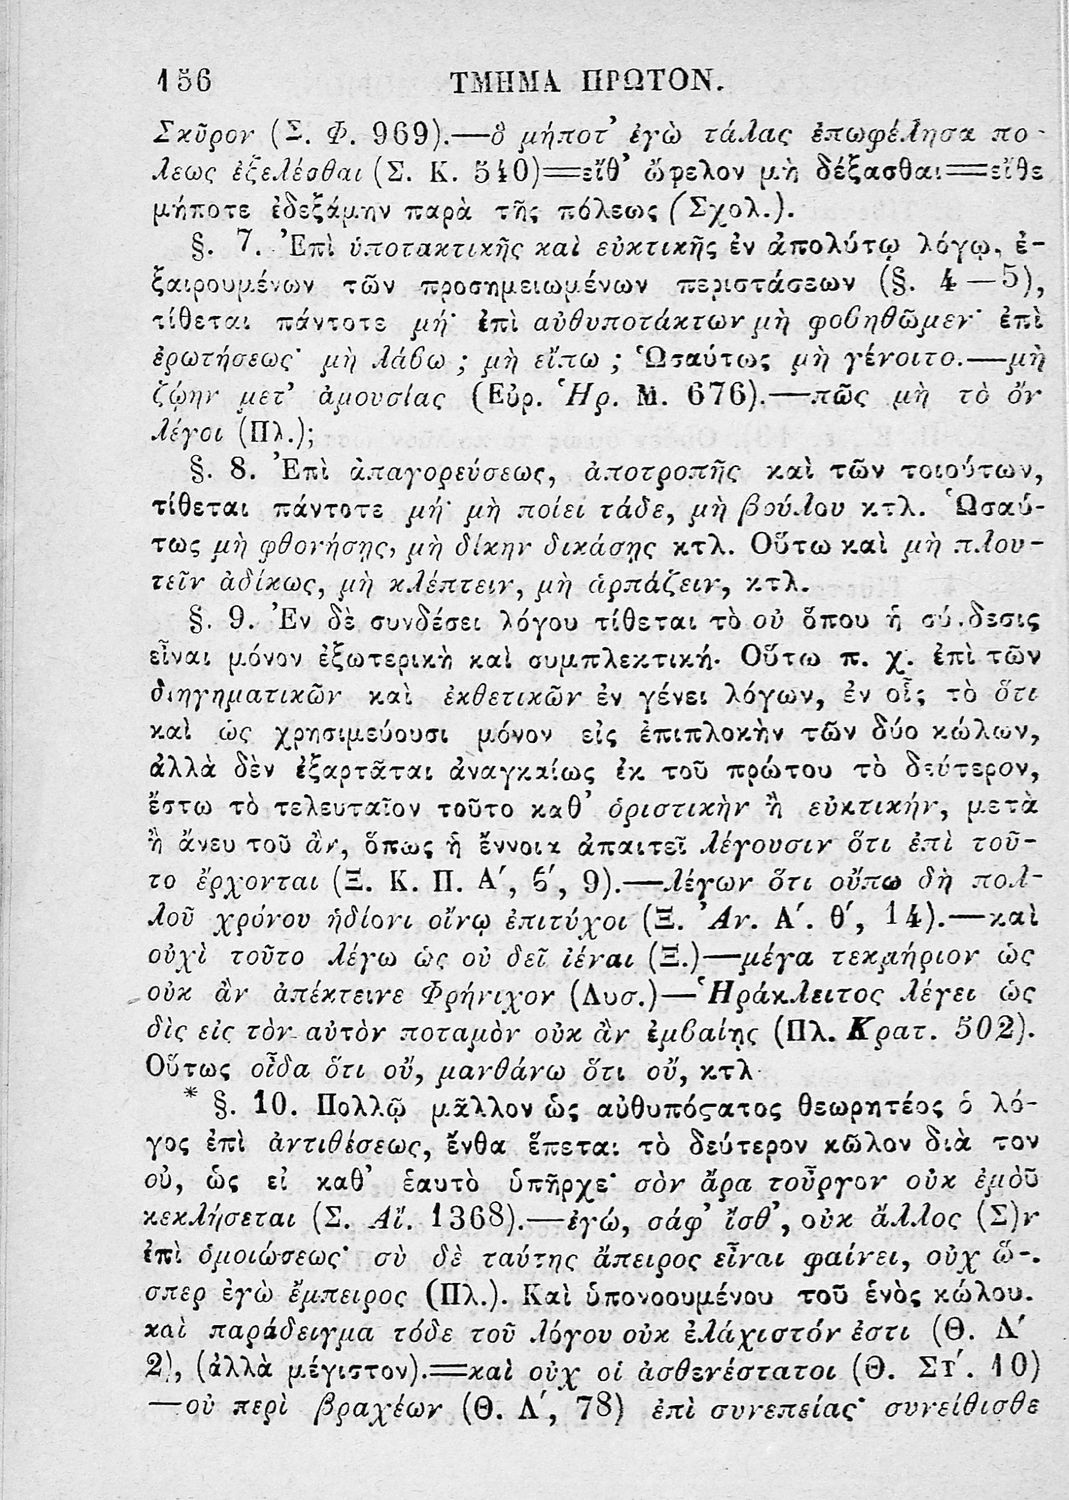 156 ΤΜΗΜΑ ΠΡΩΤΟΝ.
Σκῦρον (Σ. Φ. 969).—ὃ μήποτ’ ἐγὼ τάλας ἐπωφέλησα πο-
λεως ἐξελέσθαι (Σ. Κ. 540)=εἴθ’ ὤφελον μὴ δέξασθαι=εἴθε
μήποτε ἐδεξάμην παρὰ τῆς πόλεως (Σχολ.).
§. 7. Ἐπὶ ὑποτακτικῆς καὶ εὐκτικῆς ἐν ἀπολύτῳ λόγῳ, ἐ-
ξαιρουμένων τῶν προσημειωμένων περιστάσεων (§. 4—5),
τίθεται πάντοτε μή· ἐπὶ αὐθυποτάκτων μὴ φοβηθῶμεν· ἐπὶ
ἐρωτήσεως· μὴ λάβω ; μὴ εἴπω ; Ὡσαύτως μὴ γένοιτο.—μὴ
ζῴην μετ’ ἀμουσίας (Εὐρ. Ἡρ. Μ. 676).—πῶς μὴ τὸ ὂν
λέγοι (Πλ.);
§. 8. Ἐπὶ ἀπαγορεύσεως, ἀποτροπῆς καὶ τῶν τοιούτων,
τίθεται πάντοτε μή· μὴ ποίει τάδε, μὴ βούλου κτλ. Ὡσαύ-
τως μὴ φθονήσῃς, μὴ δίκην δικάσῃς κτλ. Οὕτω καὶ μὴ πλου-
τεῖν ἀδίκως, μὴ κλέπτειν, μὴ ἁρπάζειν, κτλ.
§. 9. Ἐν δὲ συνδέσει λόγου τίθεται τὸ οὐ ὅπου ἡ σύνδεσις
εἶναι μόνον ἐξωτερικὴ καὶ συμπλεκτική· Οὕτω π. χ. ἐπὶ τῶν
διηγηματικῶν καὶ ἐκθετικῶν ἐν γένει λόγων, ἐν οἷς τὸ ὅτι
καὶ ὡς χρησιμεύουσι μόνον εἰς ἐπιπλοκὴν τῶν δύο κώλων,
ἀλλὰ δὲν ἐξαρτᾶται ἀναγκαίως ἐκ τοῦ πρώτου τὸ δεύτερον,
ἔστω τὸ τελευταῖον τοῦτο καθ’ ὁριστικὴν ἢ εὐκτικήν, μετὰ
ἢ ἄνευ τοῦ ἂν, ὅπως ἡ ἔννοια ἀπαιτεῖ λέγουσιν ὅτι ἐπὶ τοῦ-
το ἔρχονται (Ξ. Κ. Π. Α΄, 6΄, 9).—λέγων ὅτι οὔπω δὴ πολ-
λοῦ χρόνου ἡδίονι οἴνῳ ἐπιτύχοι (Ξ. Ἀν. Α΄. θ΄, 14).—καὶ
οὐχὶ τοῦτο λέγω ὡς οὐ δεῖ ἰέναι (Ξ.)—μέγα τεκμήριον ὡς
οὐκ ἂν ἀπέκτεινε Φρήνιχον (Λυσ.)—Ἡράκλειτος λέγει ὡς
δὶς εἰς τὸν αὐτὸν ποταμὸν οὐκ ἂν ἐμβαίης (Πλ. Κρατ. 502).
Οὕτως οἶδα ὅτι οὔ, μανθάνω ὅτι οὔ, κτλ·
* §. 10. Πολλῷ μᾶλλον ὡς αὐθυπόςατος θεωρητέος ὁ λό-
γος ἐπὶ ἀντιθέσεως, ἔνθα ἕπεται τὸ δεύτερον κῶλον διὰ τον
οὐ, ὡς εἰ καθ’ ἑαυτὸ ὑπῆρχε· σὸν ἄρα τοὖργον οὐκ ἐμοῦ
κεκλήσεται (Σ. Αἴ. 1368).—ἐγώ, σάφ’ ἴσθ’, οὐκ ἄλλος (Σ)ν
ἐπὶ ὁμοιώσεως· σὺ δὲ ταύτης ἄπειρος εἶναι φαίνει, οὐχ ὥ-.
σπερ ἐγὼ ἔμπειρος (Πλ.). Καὶ ὑπονοουμένου τοῦ ἑνὸς κώλου.
καὶ παράδειγμα τόδε τοῦ λόγου οὐκ ἐλάχιστόν ἐστι (Θ. Α΄
2), (ἀλλὰ μέγιστον).=καὶ οὐχ οἱ ἀσθενέστατοι (Θ. Στ΄. 10)
—οὐ περὶ βραχέων (Θ. Α΄, 78) ἐπὶ συνεπείας· συνείθισθε